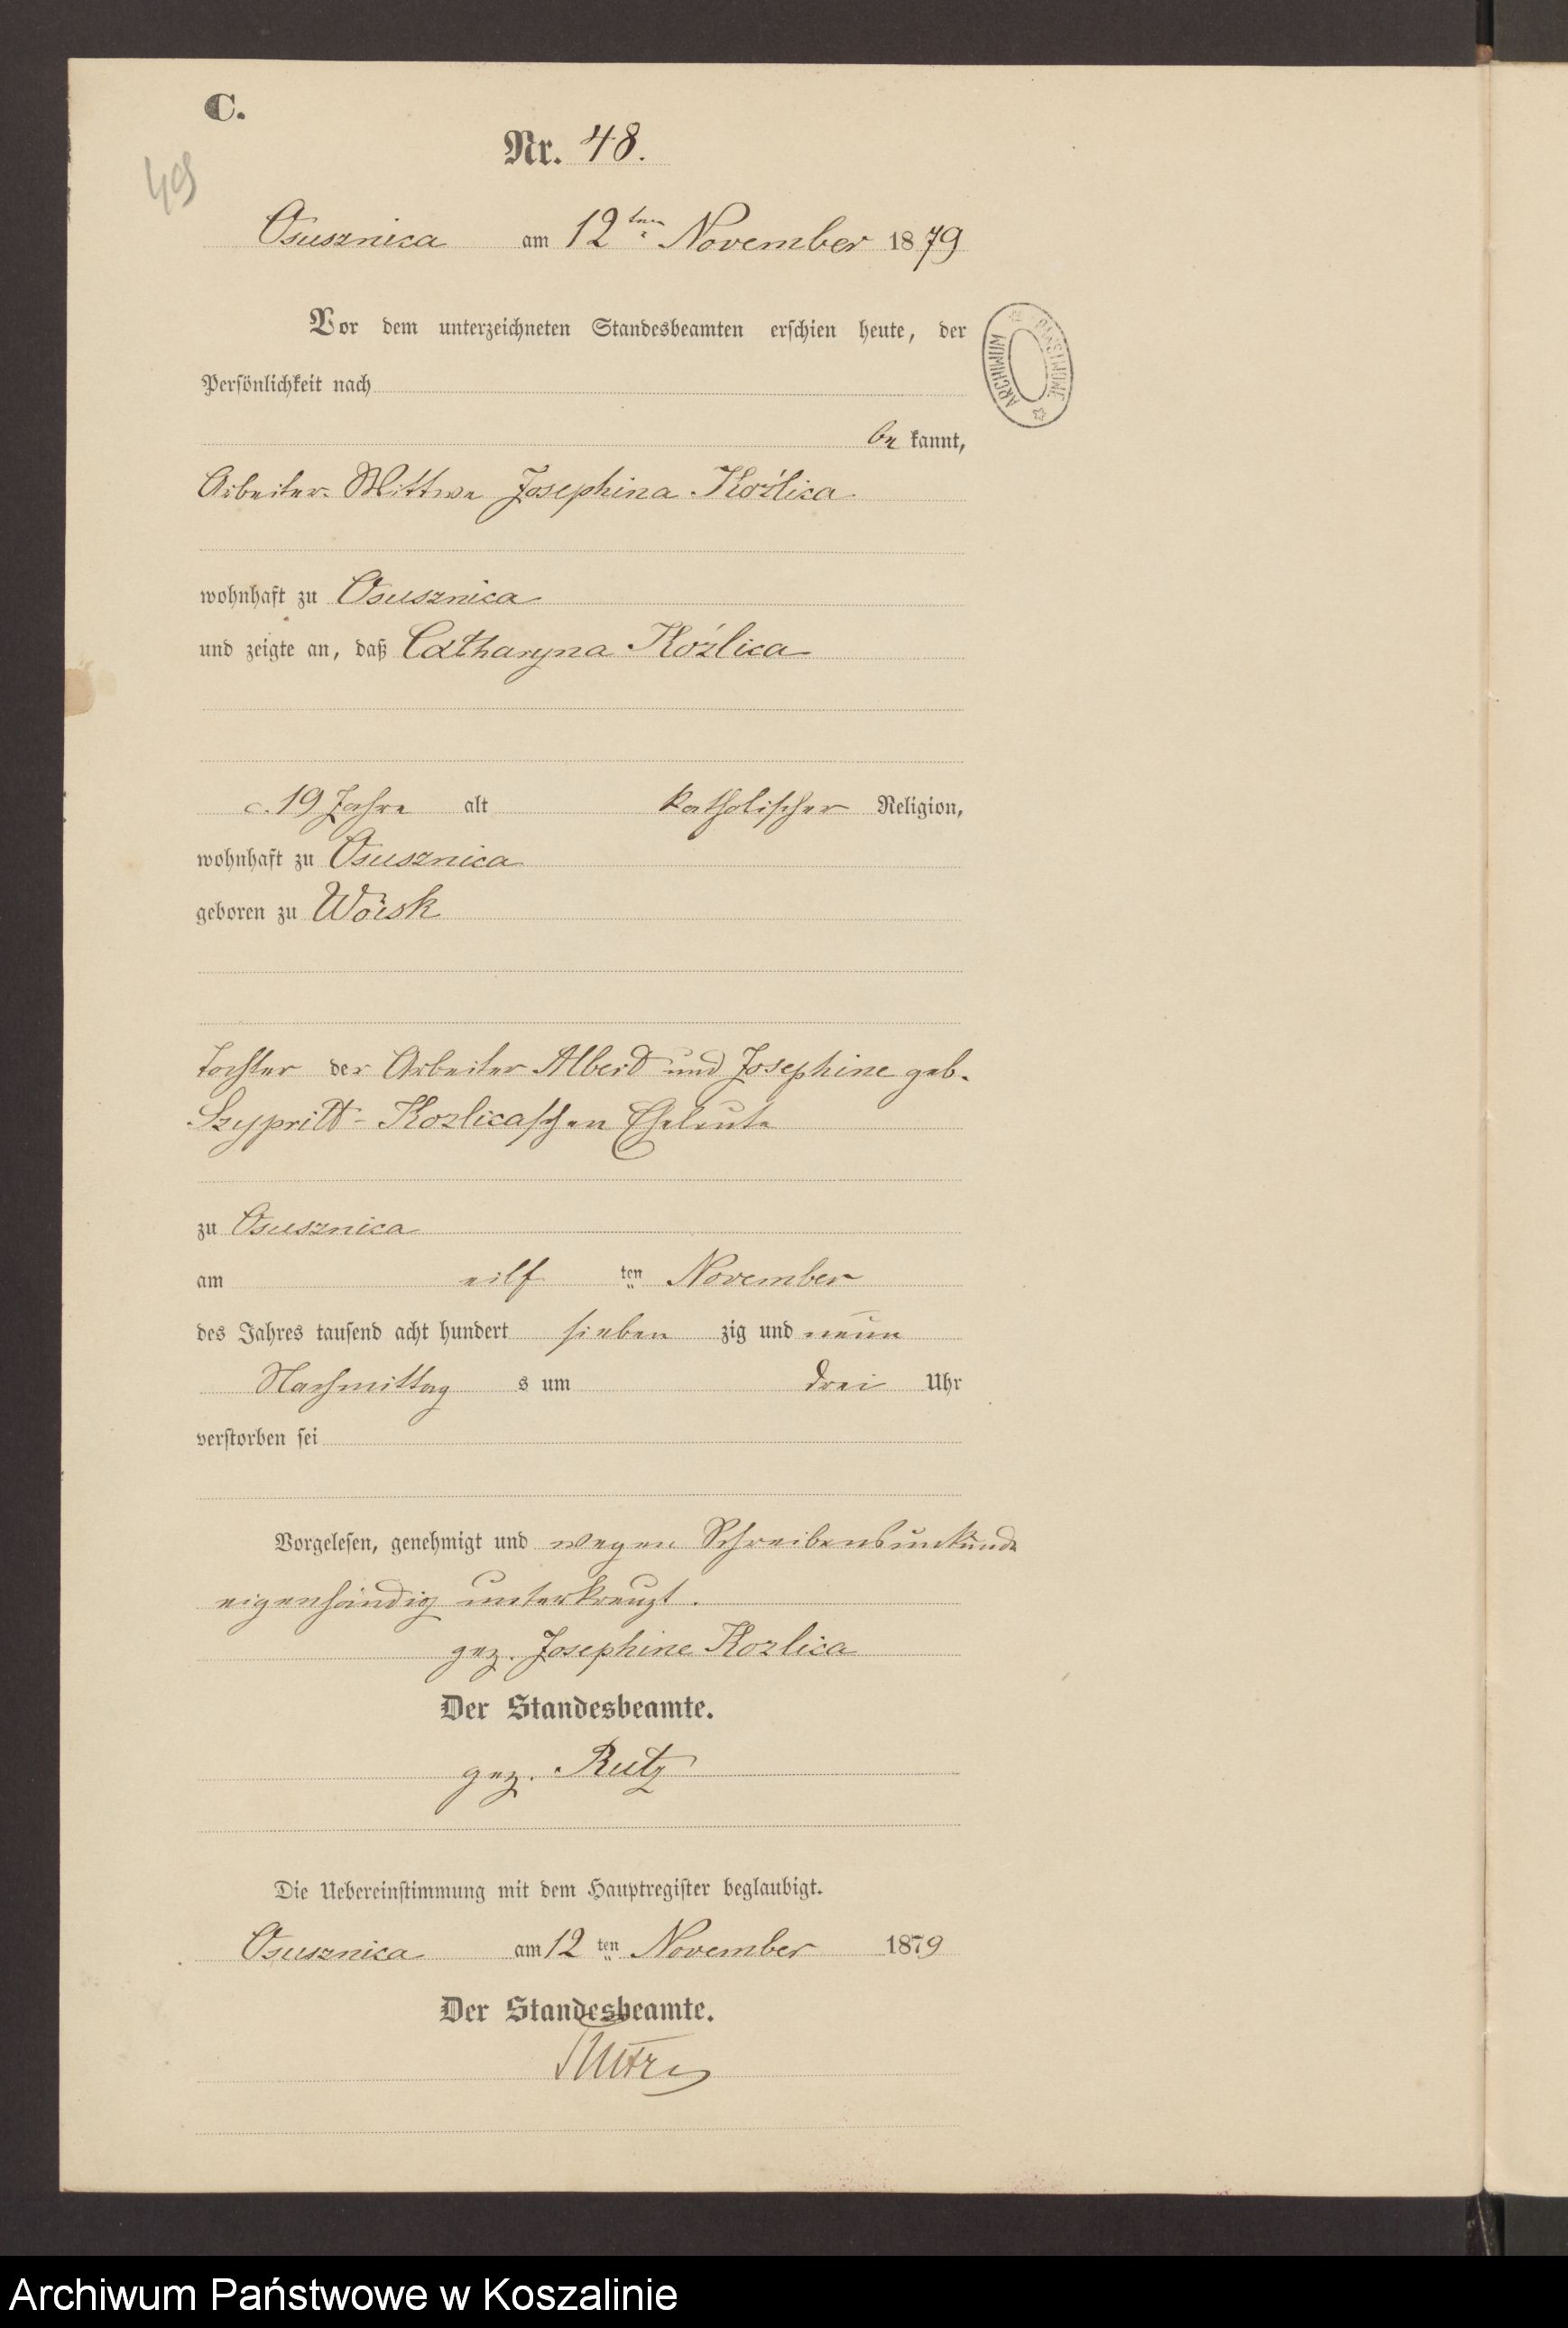 C.
Nr. 48.
49
Osusznica am 12ten November 1879
Vor dem unterzeichneten Standesbeamten erschien heute, der
Persönlichkeit nach
be kannt,
Arbeiter-Wittwe Josephina Koźlica
wohnhaft zu Osusznica
und zeigte an, daß Catharyna Koźlica
c. 19 Jahre alt katholischer Religion,
wohnhaft zu Osusznica
geboren zu Woisk
Tochter der Arbeiter Albert und Josephine geb.
Szypritt-Kozlicaschen Eheleute
zu Osusznica
am eilf ten November
des Jahres tausend acht hundert sieben zig und neun
Nachmittag s um drei Uhr
verstorben sei
Vorgelesen, genehmigt und wegen Schreibensunkunde
eigenhändig unterkreuzt.
gez. Josephine Kozlica
Der Standesbeamte.
gez. Rutz
Die Uebereinstimmung mit dem Hauptregister beglaubigt.
Osusznica am 12 ten November 1879
Der Standesbeamte.
ARCHIWUM PAŃSTWOWE
Archiwum Państwowe w Koszalinie